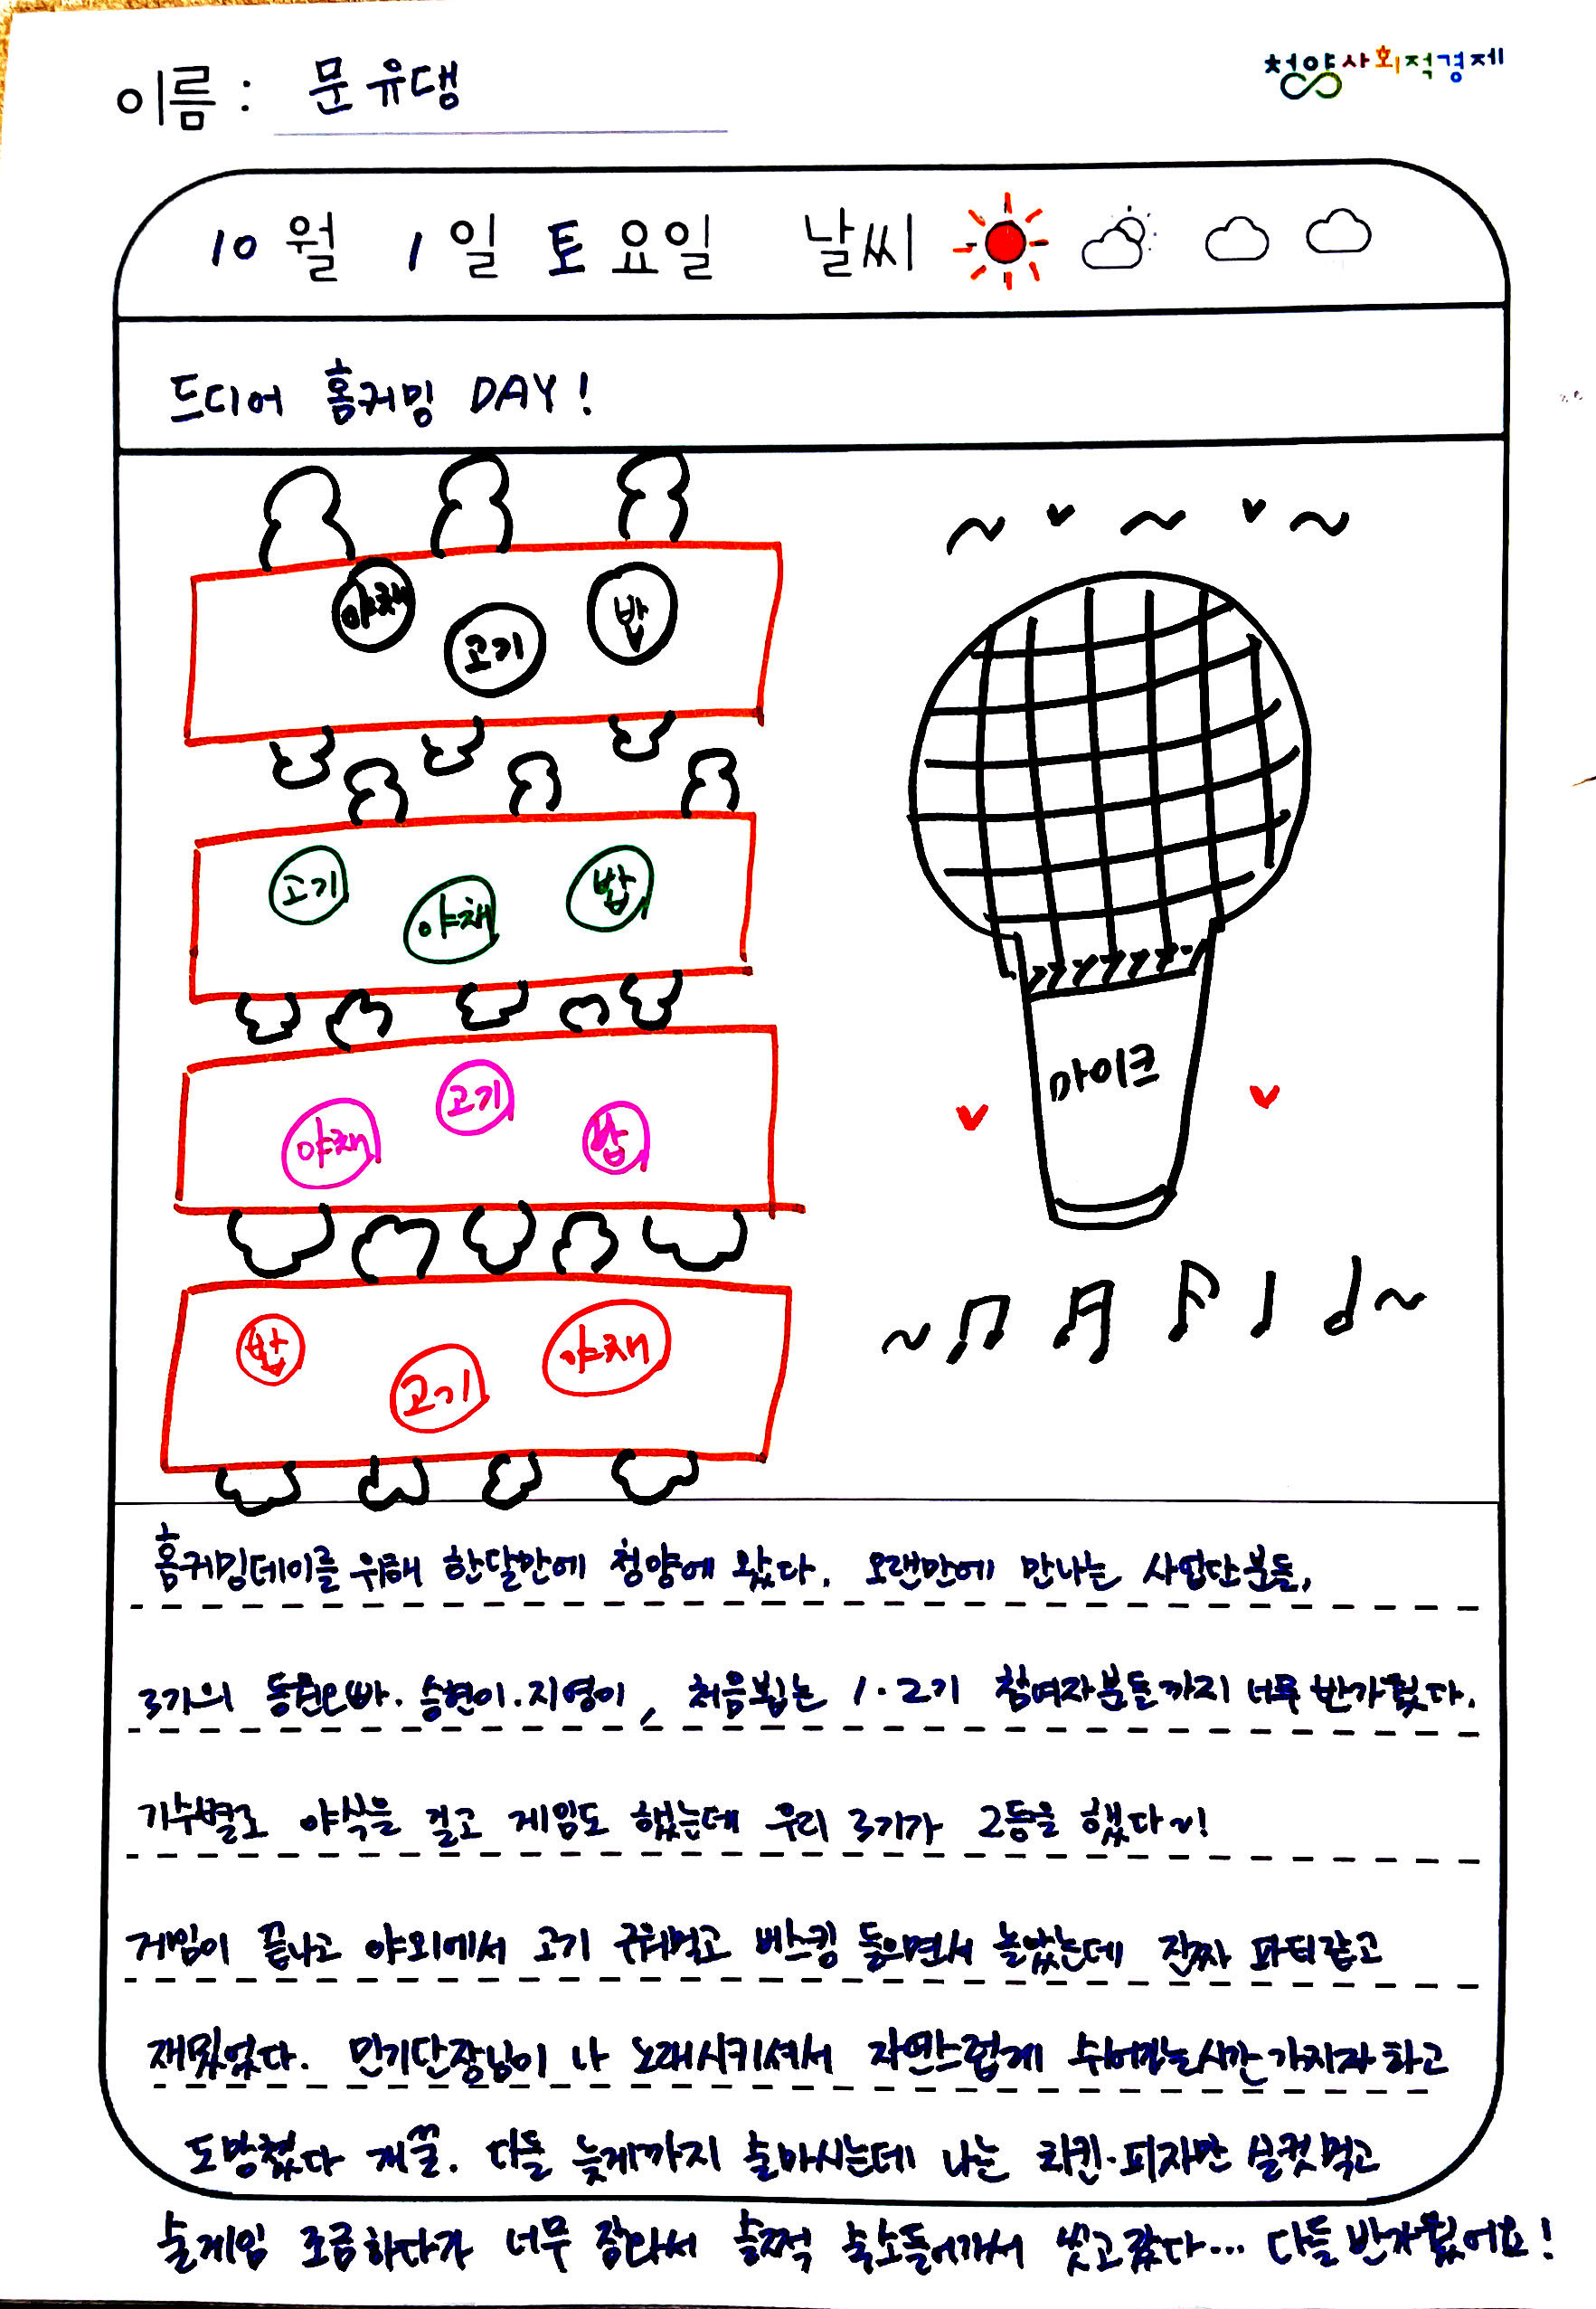 청양사회적경제
이름 : 문유댕
10월 1일 토요일 날씨
드디어 홈커밍 DAY!
야채 고기 밥
고기 야채 밥
야채 고기 밥
밥 고기 야채
마이크
홈커밍데이를 위해 한달만에 청양에 왔다. 오랜만에 만나는 사업단분들,
3기의 동원오빠·승현이·지영이, 처음뵙는 1·2기 참여자분들까지 너무 반가웠다.
기수별로 야식을 걸고 게임도 했는데 우리 3기가 2등을 했다~!
게임이 끝나고 야외에서 고기 구워먹고 버스킹 들으면서 놀았는데 진짜 파티같고
재밌었다. 민기단장님이 나 노래시키셔서 자연스럽게 쉬어가는시간 가지자 하고
도망쳤다 개꿀. 다들 늦게까지 술마시는데 나는 치킨·피자만 실컷먹고
술게임 조금하다가 너무 졸려서 슬쩍 숙소들어가서 씻고잤다... 다들반가웠어요!